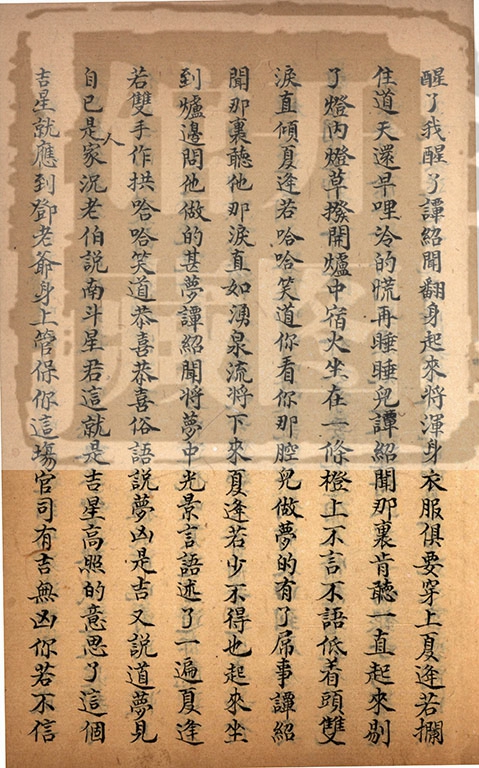 醒了我醒了譚紹聞翻身起來將渾身衣服俱要穿上夏逢若攔
住道天還早哩冷的慌再睡睡兒譚紹聞那裏肯聽一直起來剔
了燈內燈草撥開爐中宿火坐在一條櫈上不言不語低着頭雙
淚直傾夏逢若哈哈笑道你看你那腔兒做夢的有了屌事譚紹
聞那裏聽他那淚直如湧泉流將下來夏逢若少不得也起來坐
到爐邊問他做的甚夢譚紹聞將夢中光景言語述了一遍夏逢
若雙手作拱哈哈笑道恭喜恭喜俗語說夢凶是吉又說道夢見
自己是人家況老伯說南斗星君這就是吉星高照的意思了這個
吉星就應到鄧老爺身上管保你這場官司有吉無凶你若不信